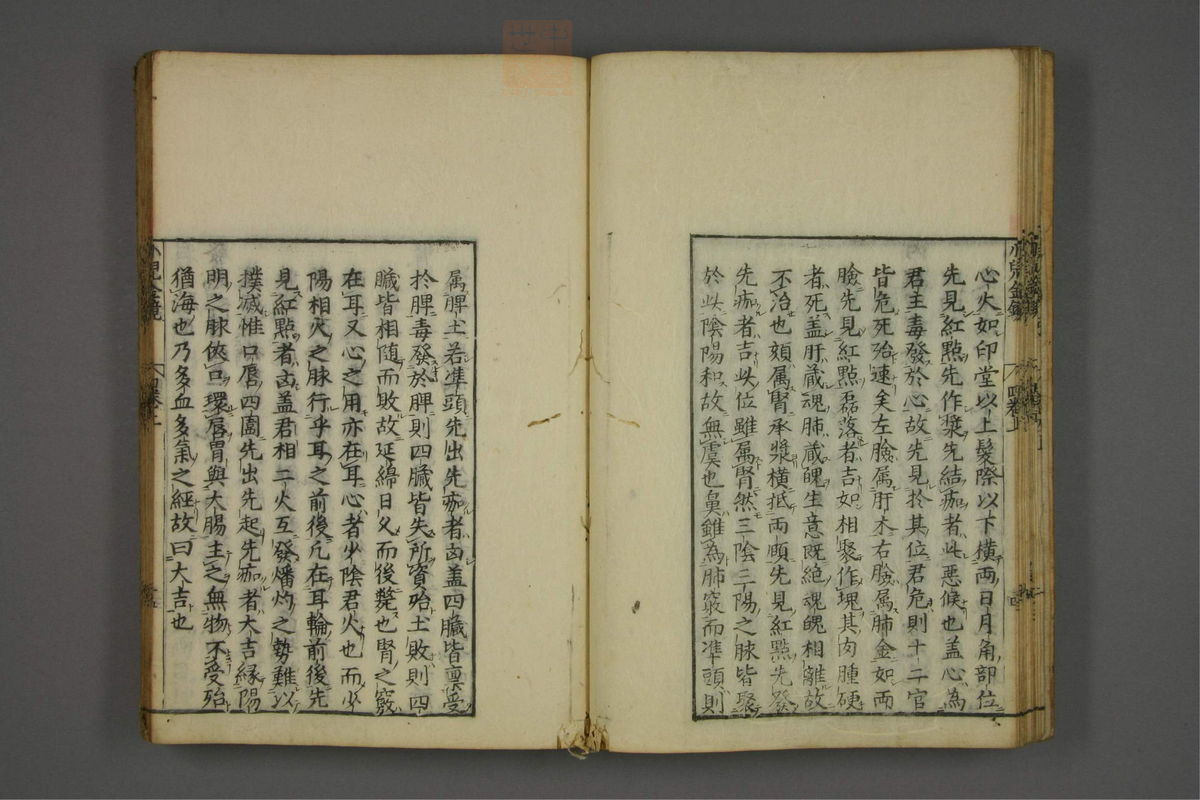 心火如印堂以上髮際以下橫兩日月角部位
先見紅點先作漿先結痂者此惡候也盖心為
君主毒發於心故先見於其位君危則十二官
皆危死殆速矣左臉属肝木右臉属肺金如兩
臉先見紅點磊落者吉如相聚作塊其肉腫硬
者死盖肝藏魂肺藏魄生意既絶魂魄相離故
不治也頦属腎承漿橫抵兩頤先見紅點先發
先痂者吉此位雖属腎然三陰三陽之脉皆聚
於此陰陽和故無虞也鼻雖為肺竅而凖頭則
属脾土若凖頭先出先痂者凶盖四臟皆禀受
於脾毒發於脾則四臟皆失所資殆土敗則四
臟皆相随而敗故延綿日久而後斃也腎之竅
在耳又心之用亦在耳心者少陰君火也而少
陽相火之脉行乎耳之前後凡在耳輪前後先
見紅點者凶盖君相二火互發燔灼之勢難以
撲滅惟口唇四圍先出先起先痂者大吉緣陽
明之脉俠口環唇胃與大腸主之無物不受殆
猶海也乃多血多氣之經故曰大吉也